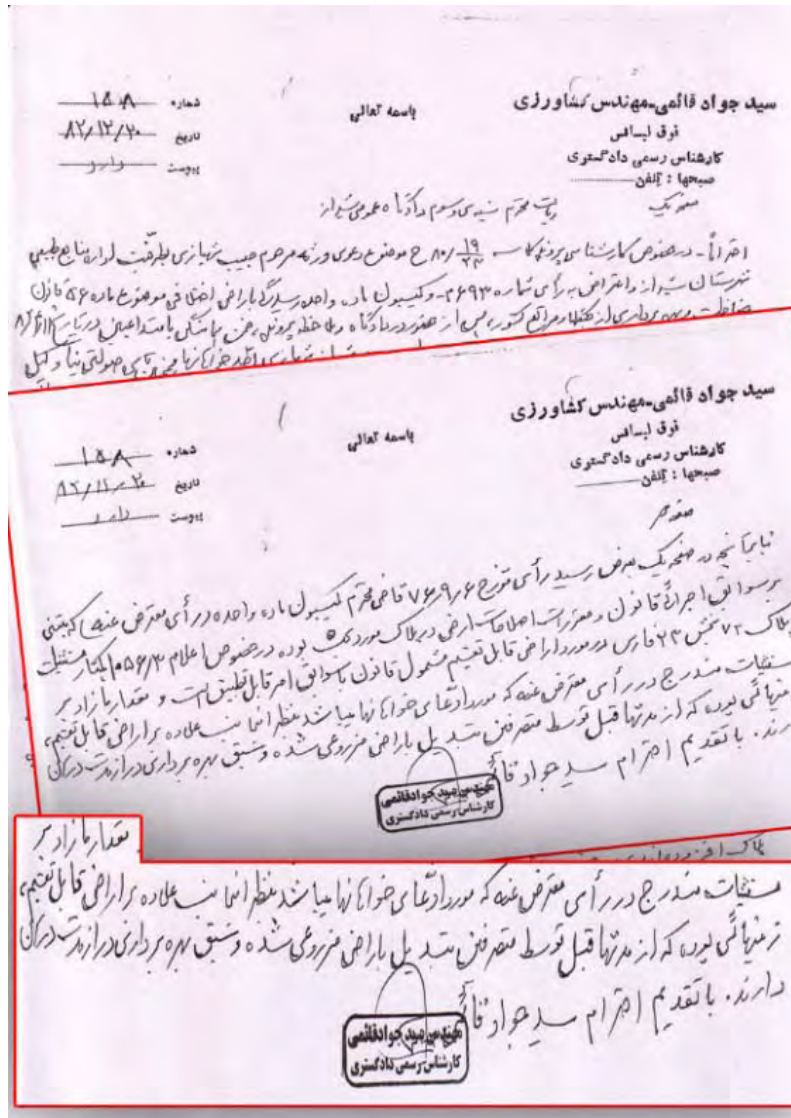 سید جواد قائمی-مهندس کشاورزی
فوق لیسانس
کارشناس رسمی دادگستری
صبحها : تلفن
باسمه تعالی
شماره ۱۵۸
تاریخ ۸۲/۱۲/۲۰
پیوست دارد
صفحه یک
ریاست محترم شعبه سی و سوم دادگاه عمومی شیراز
احتراماً - در خصوص کارشناسی پرونده کلاسه ۸۰/ ح موضوع دعوی ورثه مرحوم حبیب شهبازی بطرفیت اداره منابع طبیعی
شهرستان شیراز و اعتراض به رأی شماره ۲۶۹۳ کمیسیون ماده واحده رسیدگی باراضی اختلافی موضوع ماده ۵۶ قانون
حفاظت و بهره برداری از جنگلها و مراتع کشور، پس از حضور در دادگاه و ملاحظه پرونده، در تاریخ
سید جواد قائمی-مهندس کشاورزی
فوق لیسانس
کارشناس رسمی دادگستری
صبحها : تلفن
باسمه تعالی
شماره ۱۵۸
تاریخ ۸۲/۱۲/۲۰
پیوست دارد
صفحه
بنا بر آنچه در صفحه یک بعرض رسید رأی مورخ ۷۶/۹/۶ قاضی محترم کمیسیون ماده واحده در رأی معترض عنه که مبتنی
بر سوابق اجرائی قانون و مقررات اصلاحات ارضی در پلاک مورد بوده در خصوص اعلام ۱۰۵۶/۳ هکتار مستثنیات
پلاک ۷۲ بخش ۲۳ فارس در مورد اراضی قابل تقسیم مشمول قانون با سوابق امر قابل تطبیق است و مقدار مازاد بر
مستثنیات مندرج در رأی معترض عنه که مورد ادعای خواهانها میباشد بنظر اینجانب علاوه بر اراضی قابل تقسیم،
زمینهائی بوده که از مدتها قبل توسط متصرفین تبدیل باراضی مزروعی شده و سبق بهره برداری دراز مدت در آن
دارند. با تقدیم احترام سید جواد قائمی
مهندس سید جواد قائمی
کارشناس رسمی دادگستری
مقدار مازاد بر
مستثنیات مندرج در رأی معترض عنه که مورد ادعای خواهانها میباشد بنظر اینجانب علاوه بر اراضی قابل تقسیم،
زمینهائی بوده که از مدتها قبل توسط متصرفین تبدیل باراضی مزروعی شده و سبق بهره برداری دراز مدت در آن
دارند. با تقدیم احترام سید جواد قائمی
مهندس سید جواد قائمی
کارشناس رسمی دادگستری